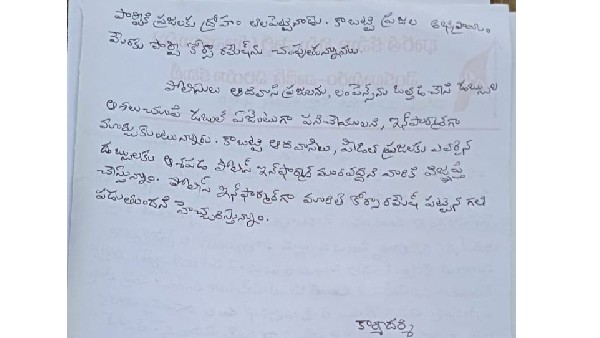 పార్టీకి ప్రజలకు ద్రోహం తలపెట్టినాడు. కాబట్టి ప్రజల అభిప్రాయం
మేరకు పార్టీ కోర్సా రమేష్‌ను చంపుతున్నాము
పోలీసులు ఆదివాసి ప్రజలను, లంపెన్స్‌ను ఒత్తిడి చేసి డబ్బుల
ఆశలు చూపి డబుల్ ఏజెంటుగా పనిచేయాలని, ఇన్‌ఫార్మర్‌గా
మార్చుకుంటున్నారు. కాబట్టి ఆదివాసీలు, పీడిత ప్రజలకు ఎవరిని
డబ్బులకు ఆశపడి పోలీస్ ఇన్‌ఫార్మర్ మారవద్దని వారికి విజ్ఞప్తి
చేస్తున్నాం. పోలీస్ ఇన్‌ఫార్మర్‌గా మారితే కోర్సా రమేష్ పట్టిన గతే
పడుతుందని హెచ్చరిస్తున్నాం.
కార్యదర్శి